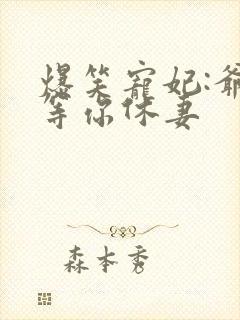 爆笑寵妃:爺
等你休妻
森本秀